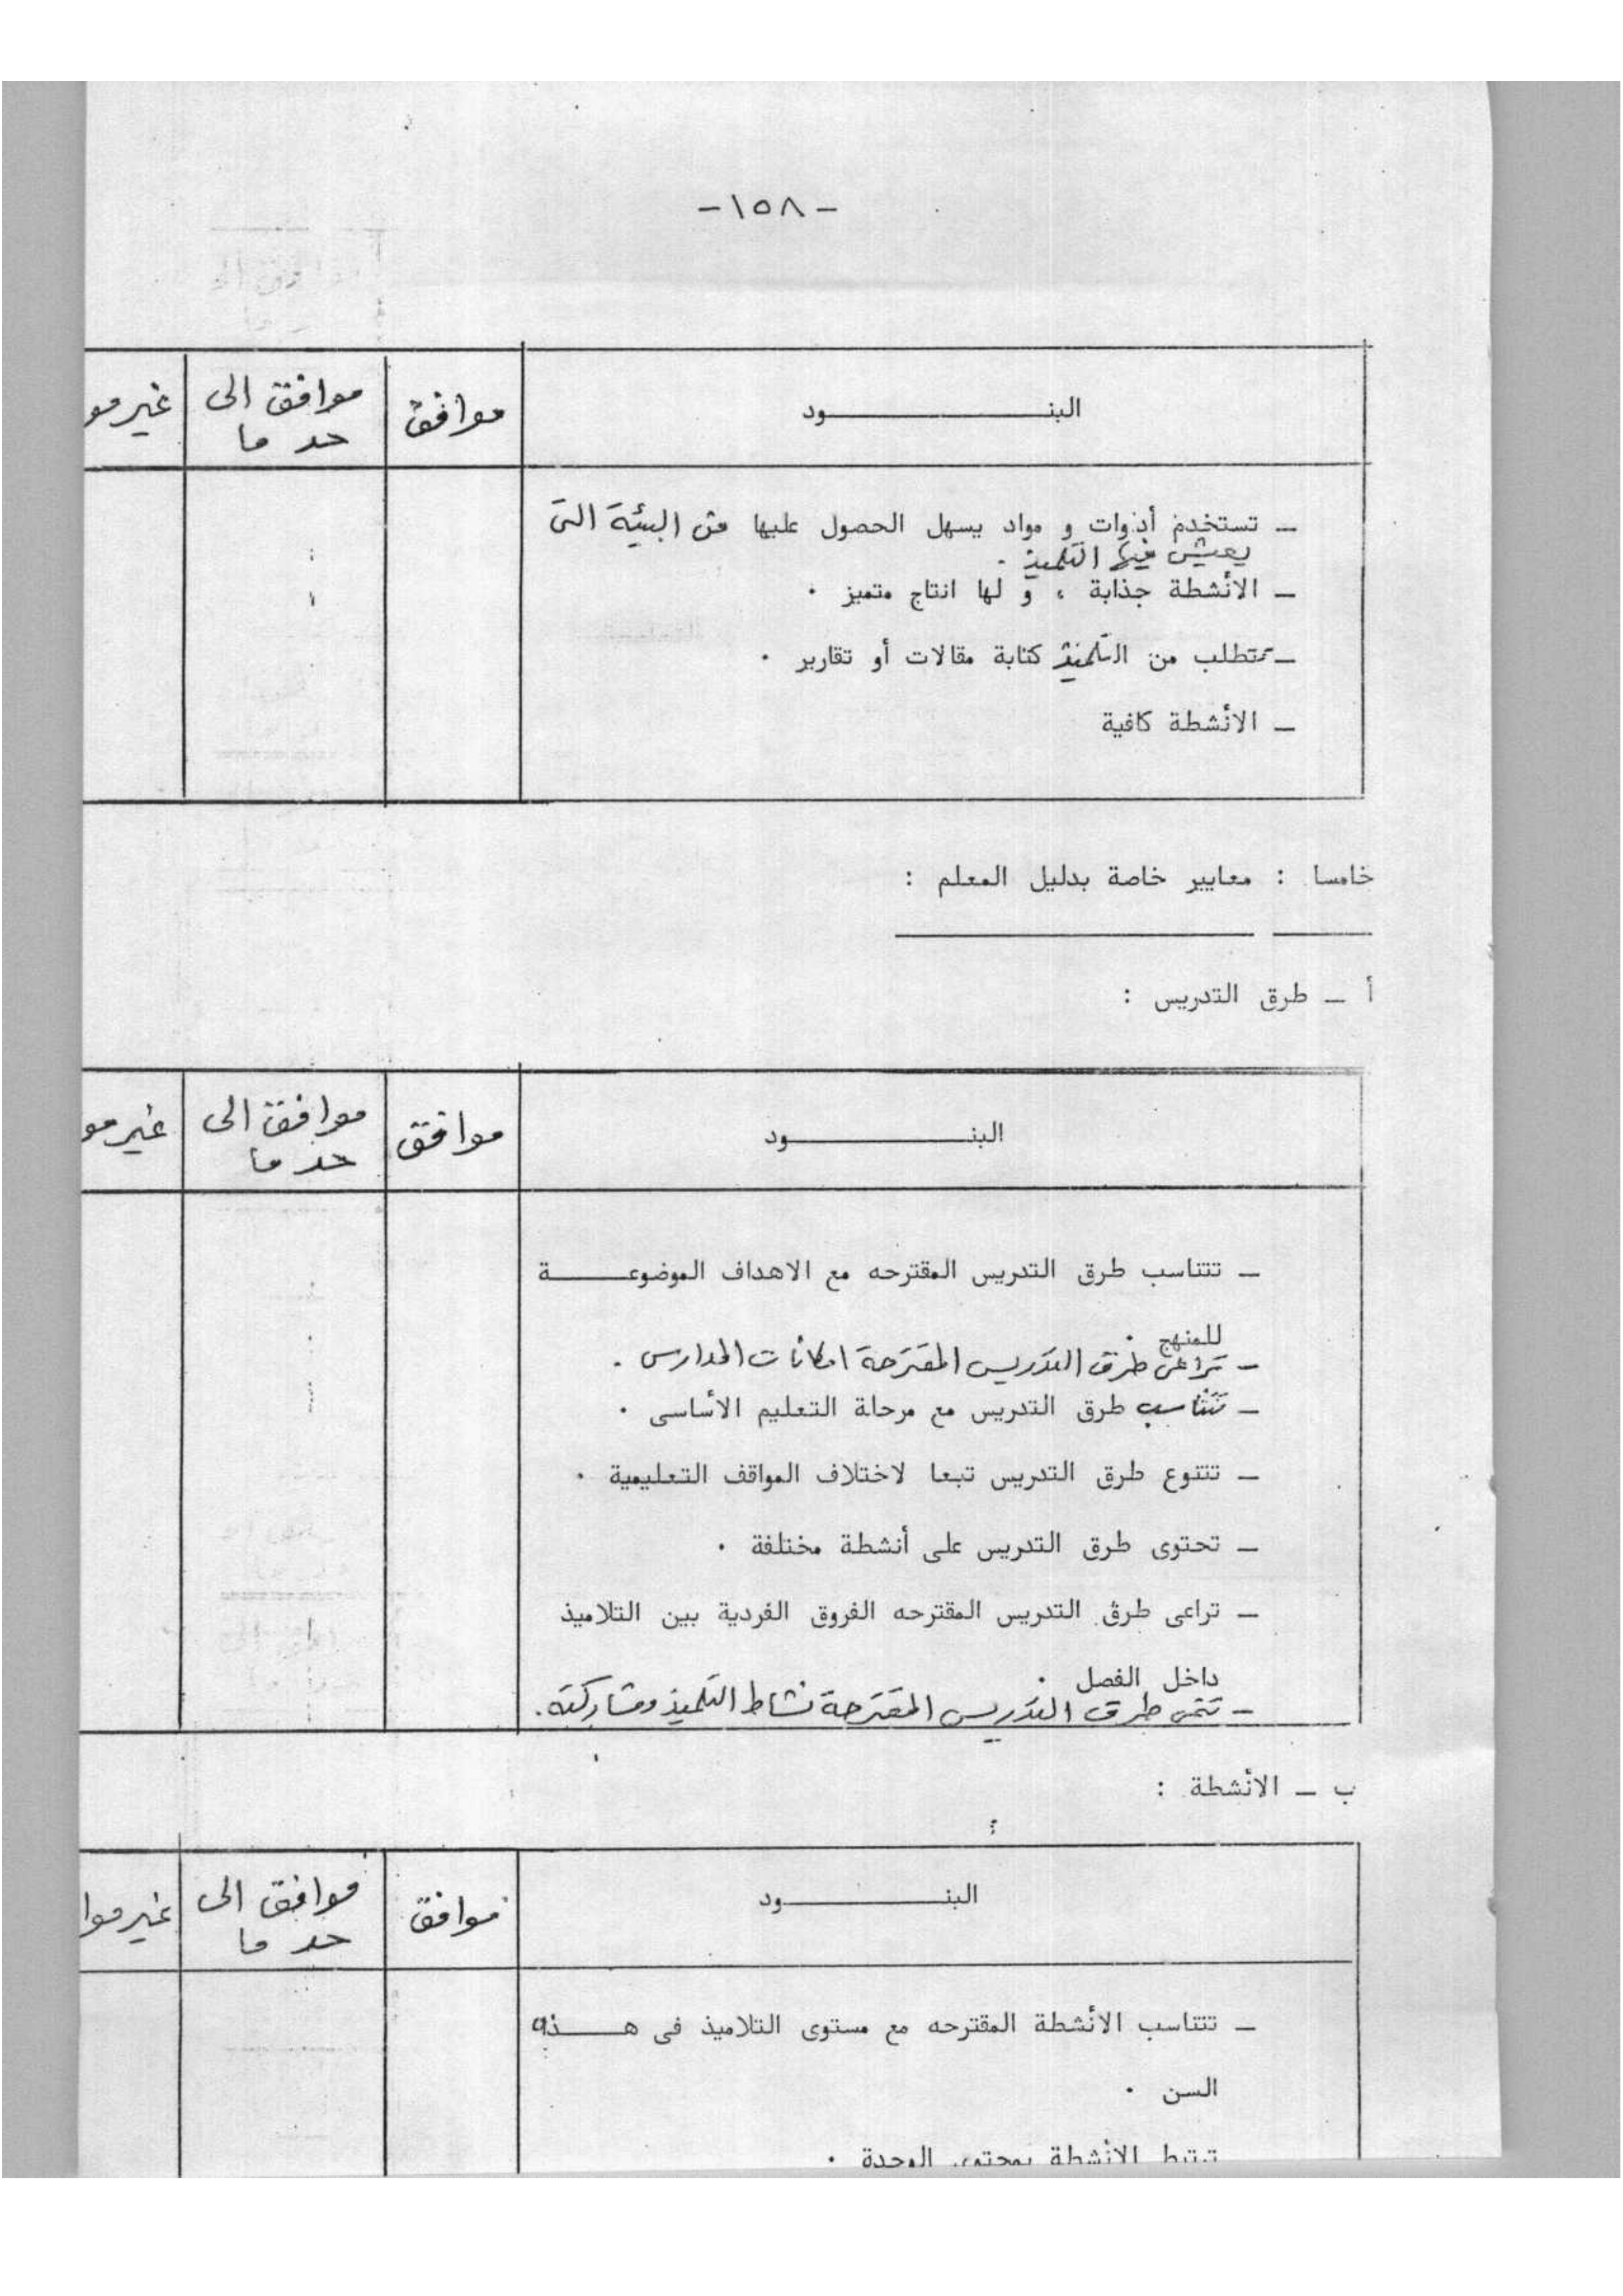 -١٥٨-
البنـــــــــود موافق موافق الى غير مو
حد ما
ـ تستخدم أدوات و مواد يسهل الحصول عليها من البيئة التى
يعيش فيها التلميذ .
ـ الأنشطة جذابة ، و لها انتاج متميز .
ـ تتطلب من التلميذ كتابة مقالات أو تقارير .
ـ الأنشطة كافية
خامسا : معايير خاصة بدليل المعلم :
أ ـ طرق التدريس :
البنـــــــــود موافق موافق الى غير مو
حد ما
ـ تتناسب طرق التدريس المقترحه مع الاهداف الموضوعـــــة
للمنهج .
ـ تراعى طرق التدريس المقترحة امكانات المدارس .
ـ تتناسب طرق التدريس مع مرحلة التعليم الأساسى .
ـ تتنوع طرق التدريس تبعا لاختلاف المواقف التعليمية .
ـ تحتوى طرق التدريس على أنشطة مختلفة .
ـ تراعى طرق التدريس المقترحه الفروق الفردية بين التلاميذ
داخل الفصل .
ـ تنمى طرق التدريس المقترحة نشاط التلميذ ومشاركته .
ب ـ الأنشطة :
البنـــــــــود موافق موافق الى غير موا
حد ما
ـ تتناسب الأنشطة المقترحه مع مستوى التلاميذ فى هـــــذه
السن .
ترتبط الأنشطة بمحتوى الوحدة .